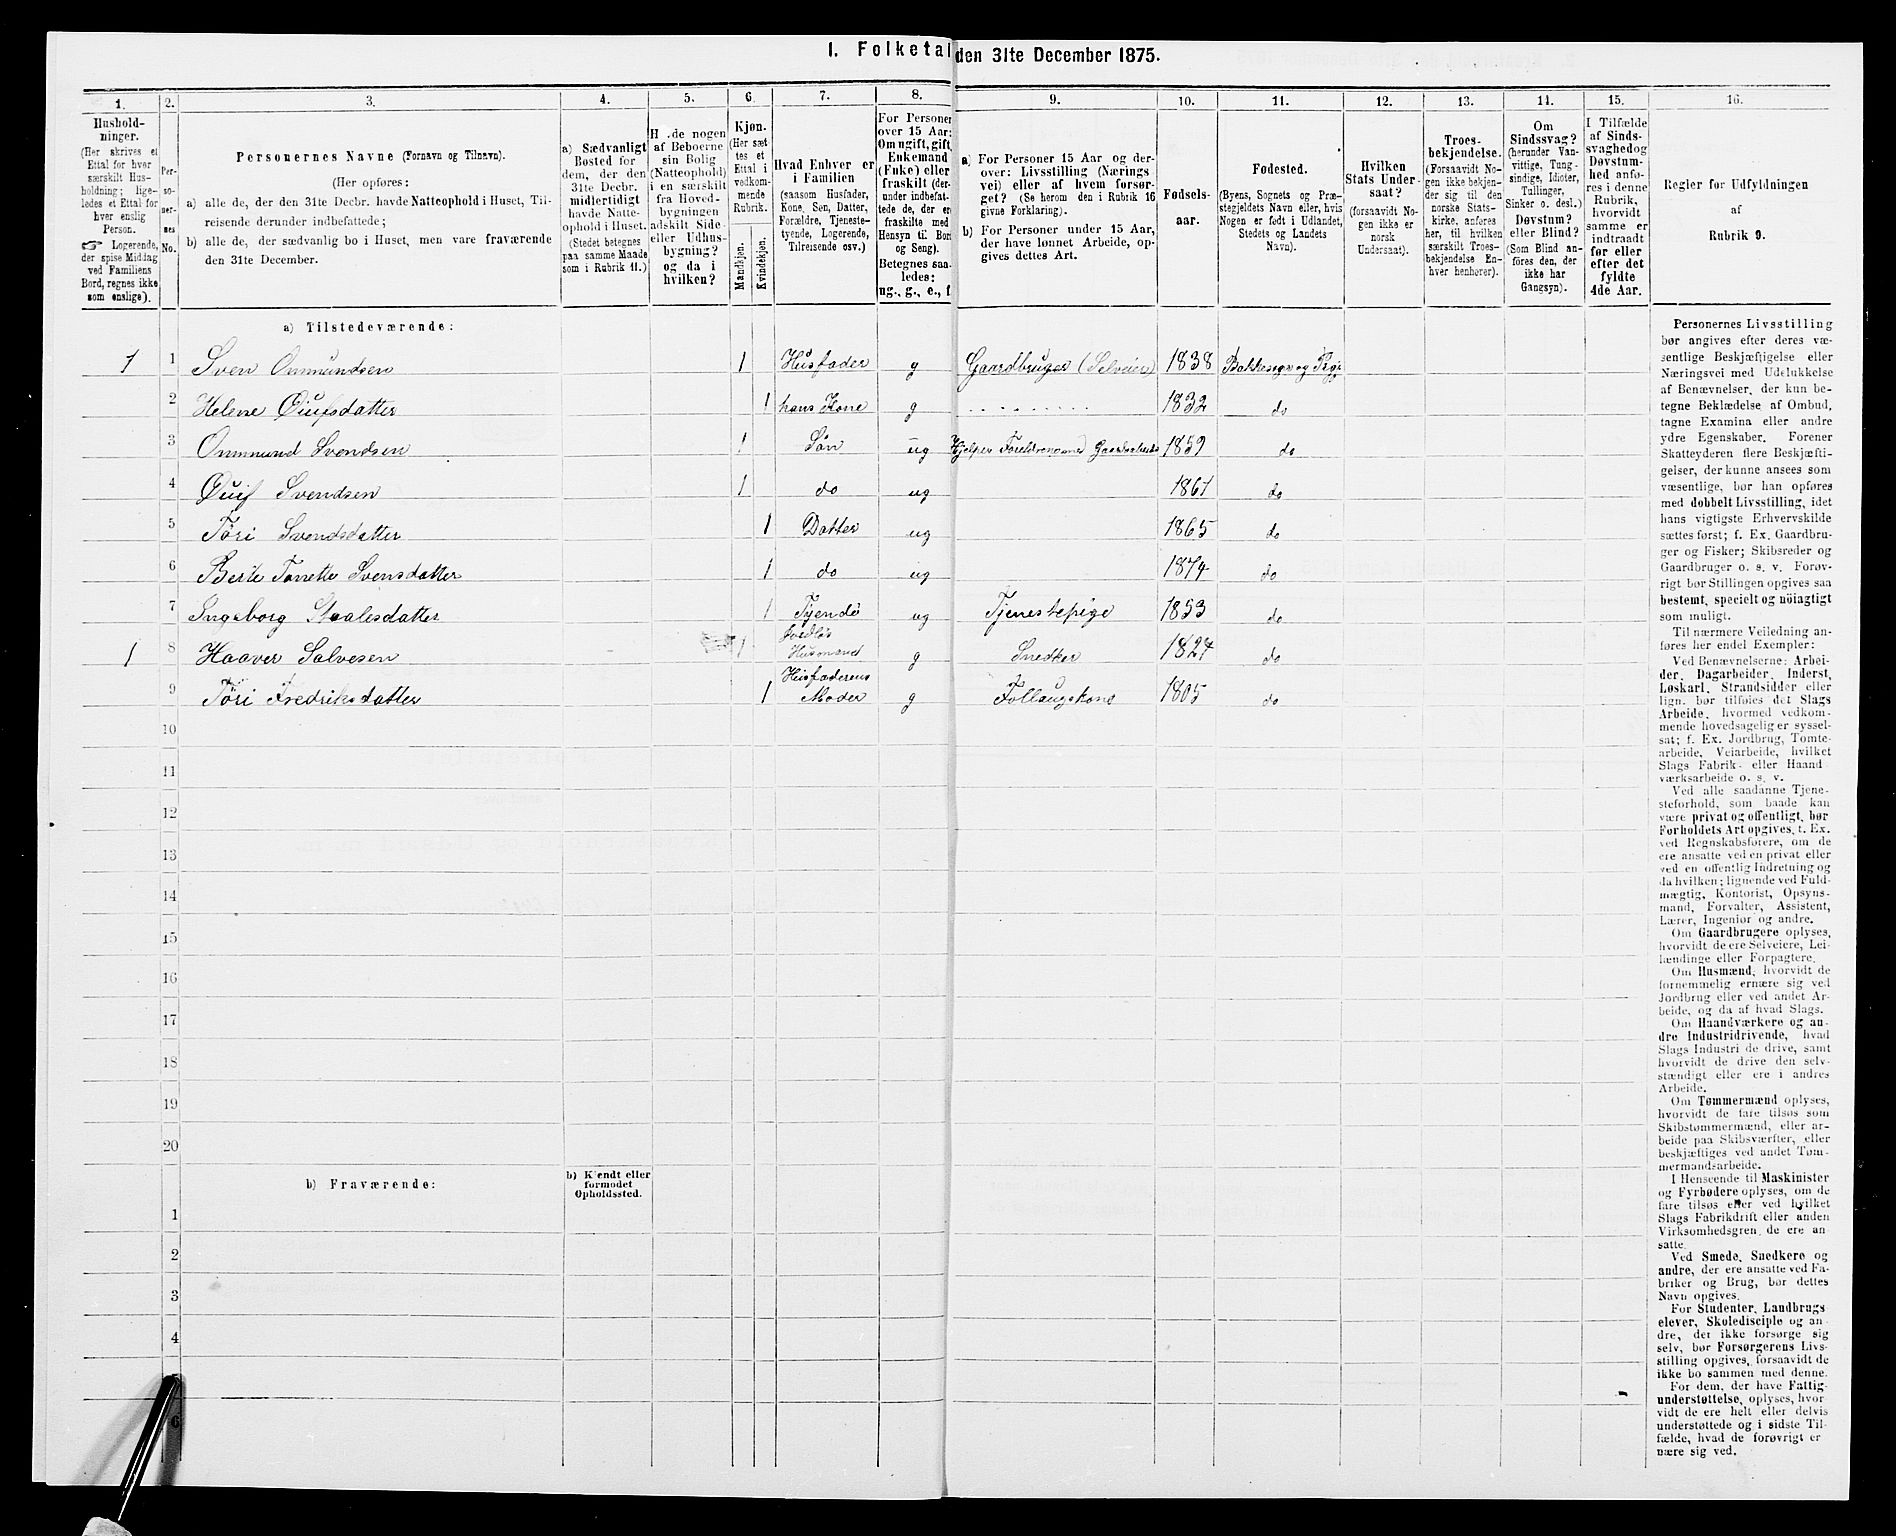 1. Folketal den 31te December 1875.
1. 2. 3. 4. 5. 6. 7. 8. 9. 10. 11. 12. 13. 14. 15. 16.
Hushold-
ninger.
(Her skrives et
Ettal for hver
særskilt Hus-
holdning; lige-
ledes et Ettal for
hver enslig
Person.
Logerende,
der spise Middag
ved Familiens
Bord, regnes ikke
som enslige).
Per-
so-
ner-
nes
No.
Personernes Navne (Fornavn og Tilnavn).
(Her opføres:
a) alle de, der den 31te Decbr. havde Natteophold i Huset, Til-
reisende derunder indbefattede;
b) alle de, der sædvanlig bo i Huset, men vare fraværende
den 31te December.
a) Sædvanligt
Bosted for
dem, der den
31te Decbr.
midlertidigt
havde Natte-
ophold i Huset.
(Stedet betegnes
paa samme Maade
som i Rubrik 11.)
H de nogen
af Beboerne
sin Bolig
(Natteophold)
i en særskilt
fra Hoved-
bygningen
adskilt Side-
eller Udhus-
bygning?
og da i
hvilken?
Kjøn.
(Her sæt
tes et
Ettal i
vedkom-
mende
Rubrik.
Mandkjøn.
Kvindekjøn.
Hvad Enhver er
i Familien
(saasom Husfader,
Kone, Søn, Datter,
Forældre, Tjeneste-
tyende, Logerende,
Tilreisende osv.)
For Personer
over 15 Aar:
Om ugift, gift,
Enkemand
(Enke) eller
fraskilt (der-
under indbefat-
tede de, der er
fraskilte med
Hensyn til Bord
og Seng).
Betegnes saa-
ledes:
ug., g., e., f.
a) For Personer 15 Aar og der-
over: Livsstilling (Nærings
vei) eller af hvem forsør-
get? (Se herom den i Rubrik 16
givne Forklaring).
b) For Personer under 15 Aar,
der have lønnet Arbeide, op-
gives dettes Art.
Fødsels-
aar.
Fødested.
(Byens, Sognets og Præ-
stegjeldets Navn eller, hvis
Nogen er født i Udlandet,
Stedets og Landets
Navn).
Hvilken
Stats Under-
saat?
(forsaavidt No-
gen ikke er
norsk
Undersaat).
Troes-
bekjendelse.
(Forsaavidt No-
gen ikke bekjen-
der sig til den
norske Stats-
kirke, anføres
her, til hvilken
særskilt Troes-
bekjendelse En-
hver henhører).
Om
Sindssvag?
(herunder Van-
vittige, Tung-
sindige, Idioter,
Tullinger,
Sinker o. desl.)
Døvstum?
eller Blind?
(Som Blind an-
føres den, der
ikke har
Gangsyn).
I Tilfælde
af Sinds-
svaghed og
Døvstum-
hed anfø-
res i denne
Rubrik,
hvorvidt
samme er
indtraadt
før eller
efter det
fyldte
4de Aar.
Regler for Udfyldningen
af
Rubrik 9.
a) Tilstedeværende:
1 1 Sven Ommundsen 1 Husfader g Gaardbruger (Selveier) 1838
2 Helene Øiufsdatter 1 hans Kone g 1832 do
3 Ommund Svendsen 1 Søn ug 1859 do
4 Øiuf Svendsen 1 do ug 1861 do
5 Tøri Svendsdatter 1 Datter ug 1865 do
6 Berte Tonette Svensdatter 1 do ug 1874 do
7 Ingeborg Staalesdatter 1 Tjende ug Tjenestepige 1853 do
1 8 Haaver Salvesen 1 Husmand g Snedker 1827 do
9 Tøri Fredriksdatter 1 Husfaderens Moder g Follaugskone 1805 do
10
11
12
13
14
15
16
17
18
19
20
b) Fraværende:
b) Kjendt eller
formodet
Opholdssted.
1
2
3
4
6
Personernes Livsstilling
bør angives efter deres væ-
sentlige Beskjæftigelse eller
Næringsvei med Udelukkelse
af Benævnelser, der kun be-
tegne Beklædelse af Ombud,
tagne Examina eller andre
ydre Egenskaber. Forener
Skatteyderen flere Beskjæfti-
gelser, der kunne ansees som
væsentlige, bør han opføres
med dobbelt Livsstilling, idet
hans vigtigste Erhvervskilde
sættes først; f. Ex. Gaardbru-
ger og Fisker; Skibsreder og
Gaardbruger o. s. v. Forøv-
rigt bør Stillingen opgives saa
bestemt, specielt og nöiagtigt
som muligt.
Til nærmere Veiledning an-
føres her endel Exempler:
Ved Benævnelserne: Arbei-
der, Dagarbeider, Inderst,
Løskarl, Strandsidder eller
lign. bør tilføies det Slags
Arbeide, hvormed vedkom-
mende hovedsagelig er syssel-
sat; f. Ex. Jordbrug, Tomte-
arbeide, Veiarbeide, hvilket
Slags Fabrik- eller Haand
værksarbeide o. s. v.
Ved alle saadanne Tjene-
steforhold, som baade kan
være privat og offentligt, bør
Forholdets Art opgives, t. Ex.
ved Regnskabsførere, om de
ere ansatte ved en privat eller
ved en offentlig Indretning og
da hvilken; lignende ved Fuld-
mægtig, Kontorist, Opsyns-
mand, Forvalter, Assistent,
Lærer, Ingeniør og andre.
Om Gaardbrugere oplyses,
hvorvidt de ere Selveiere, Lei-
lændinge eller Forpagtere.
Om Husmænd, hvorvidt de
fornemmelig ernære sig ved
Jordbrug eller ved andet Ar-
beide, og da af hvad Slags.
Om Haandværkere og an-
dre Industridrivende, hvad
Slags Industri de drive, samt
hvorvidt de drive den selv-
stændigt eller ere i andres
Arbeide.
Om Tømmermænd oplyses,
hvorvidt de fare tilsøs som
Skibstømmermænd, eller ar-
beide paa Skibsværfter, eller
beskjæftiges ved andet Tøm-
mermandsarbeide.
I Henseende til Maskinister
og Fyrbødere oplyses, om de
fare tilsøs eller ved hvilket
Slags Fabrikdrift eller anden
Virksomhedsgren de ere an-
satte.
Ved Smede, Snedkere og
andre, der ere ansatte ved Fa-
briker og Brug, bør dettes
Navn opgives.
For Studenter, Landbrugs
elever, Skoledisciple og an-
dre, der ikke forsørge sig
selv, bør Forsørgerens Livs-
stilling opgives, forsaavidt de
ikke bo sammen med denne.
For dem, der have Fattig-
understøttelse, oplyses, hvor-
vidt de ere helt eller delvis
understøttede og i sidste Til-
fælde, hvad de forøvrigt er
nære sig ved.